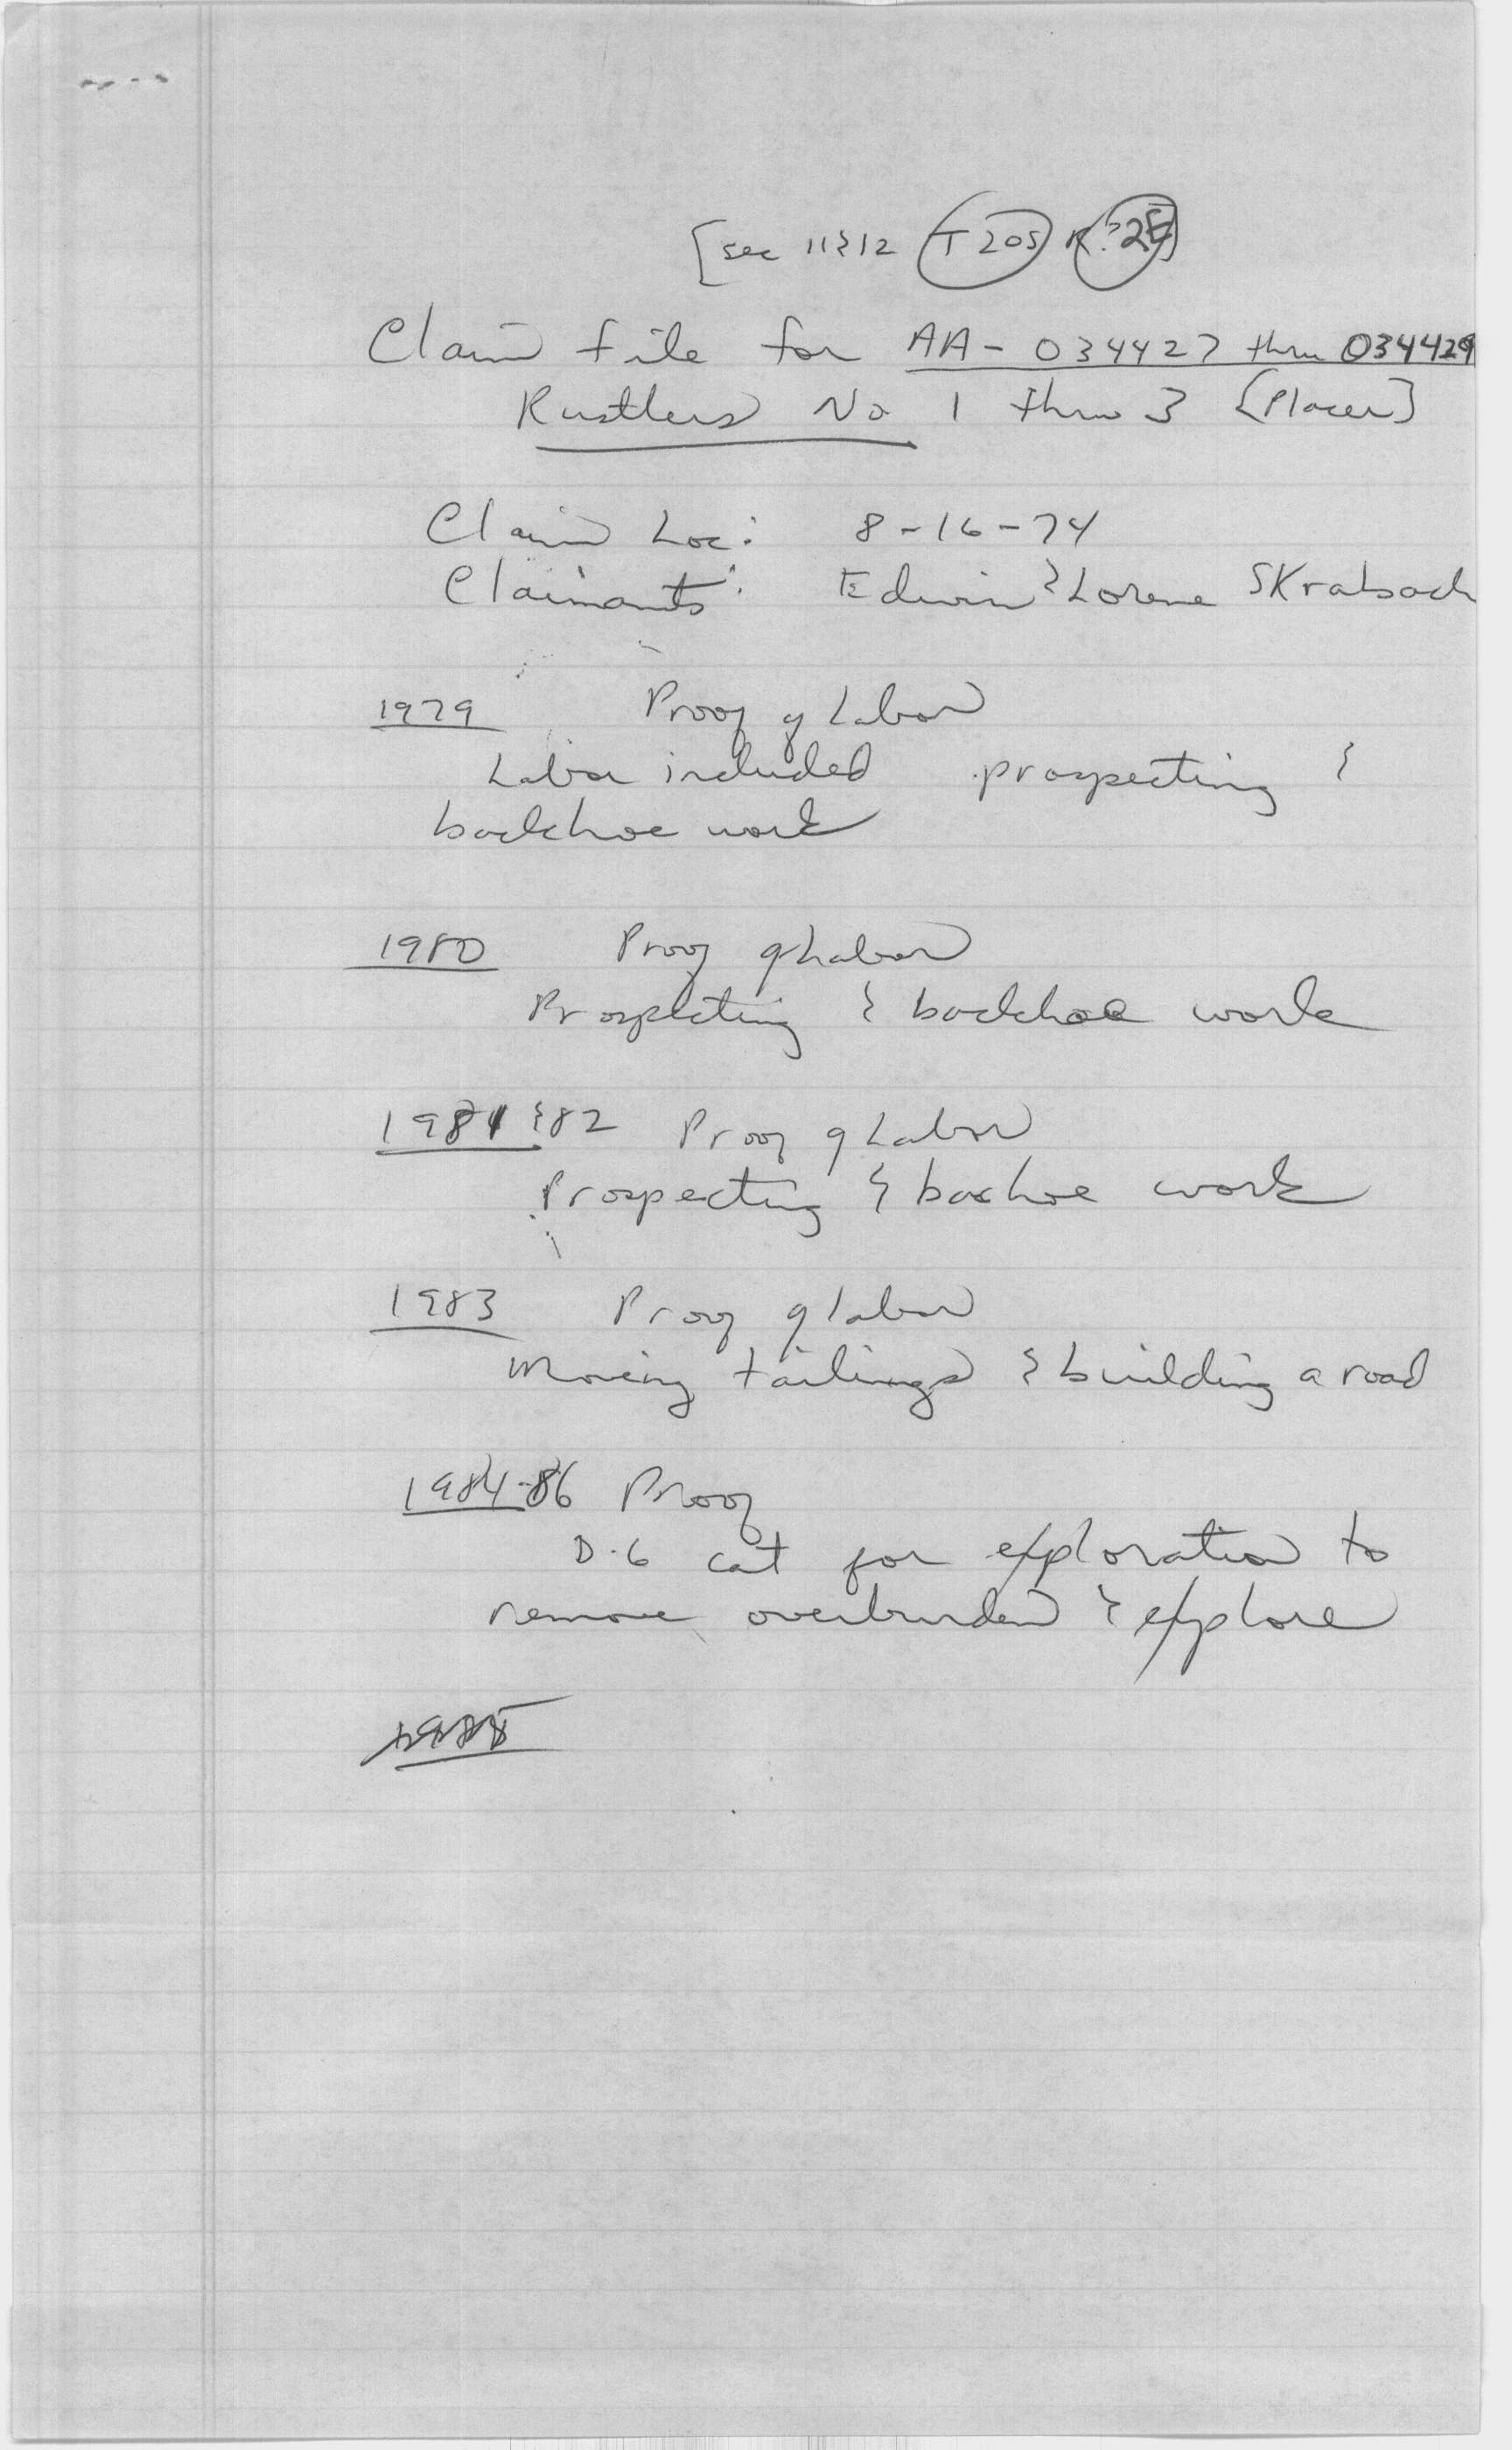 [sec 11 & 12 T20S R?2E]
Claim file for AA-034427 thru 034429
Rustlers No 1 thru 3 [Placer]
Claim Loc: 8-16-74
Claimants: Edwin & Lorene Skrabach
1979 Proof of Labor
Labor included prospecting &
backhoe work
1980 Proof of Labor
Prospecting & backhoe work
1981 & 82 Proof of Labor
Prospecting & bachoe work
1983 Proof of labor
Moving tailings & building a road
1984-86 Proof
D-6 cat for exploration to
remove overburden & explore